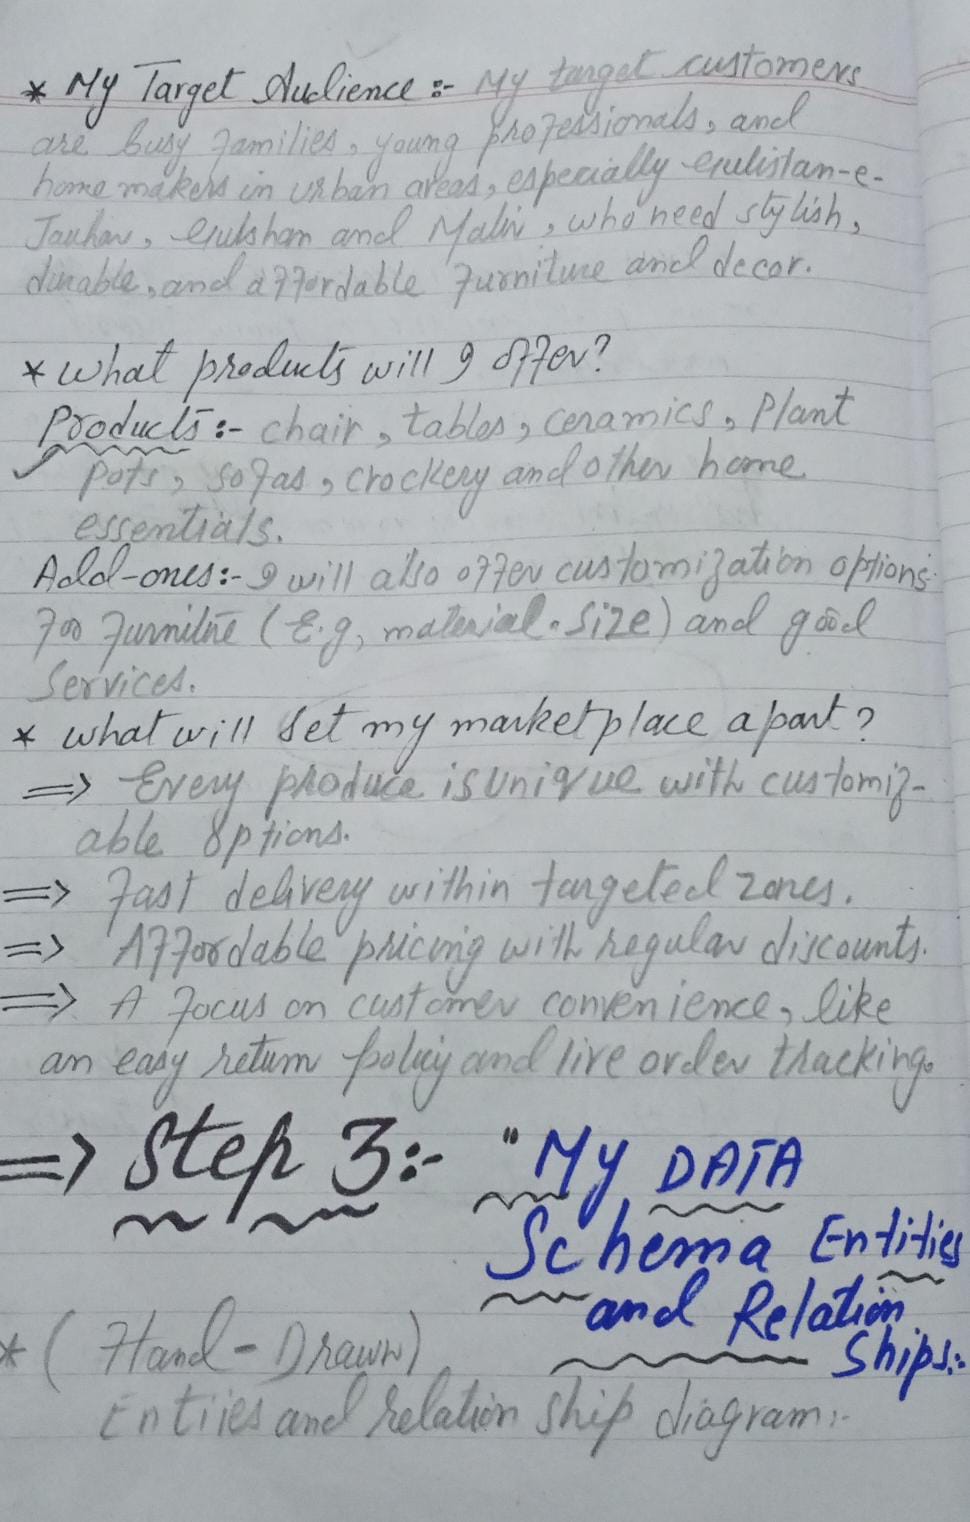 * My Target Audience :- My target customers
are busy families, young professionals, and
home makers in urban areas, especially Gulistan-e-
Jauhar, Gulshan and Malir, who need stylish,
durable, and affordable furniture and decor.
* What products will I offer?
Products :- chair, tables, ceramics, Plant
pots, sofas, crockery and other home
essentials.
Add-ones:- I will also offer customization options
for furnitue (E.g, material. size) and good
Services.
* What will set my marketplace apart?
=> Every produce is unique with customiz-
able options.
=> Fast delivery within targeted zones.
=> Affordable pricing with regular discounts.
=> A focus on customer convenience, like
an easy return policy and live order tracking.
=> Step 3:- "My DATA
Schema Entities
and Relation
Ships:-
* (Hand-Drawn)
Entiies and relation ship diagram:-